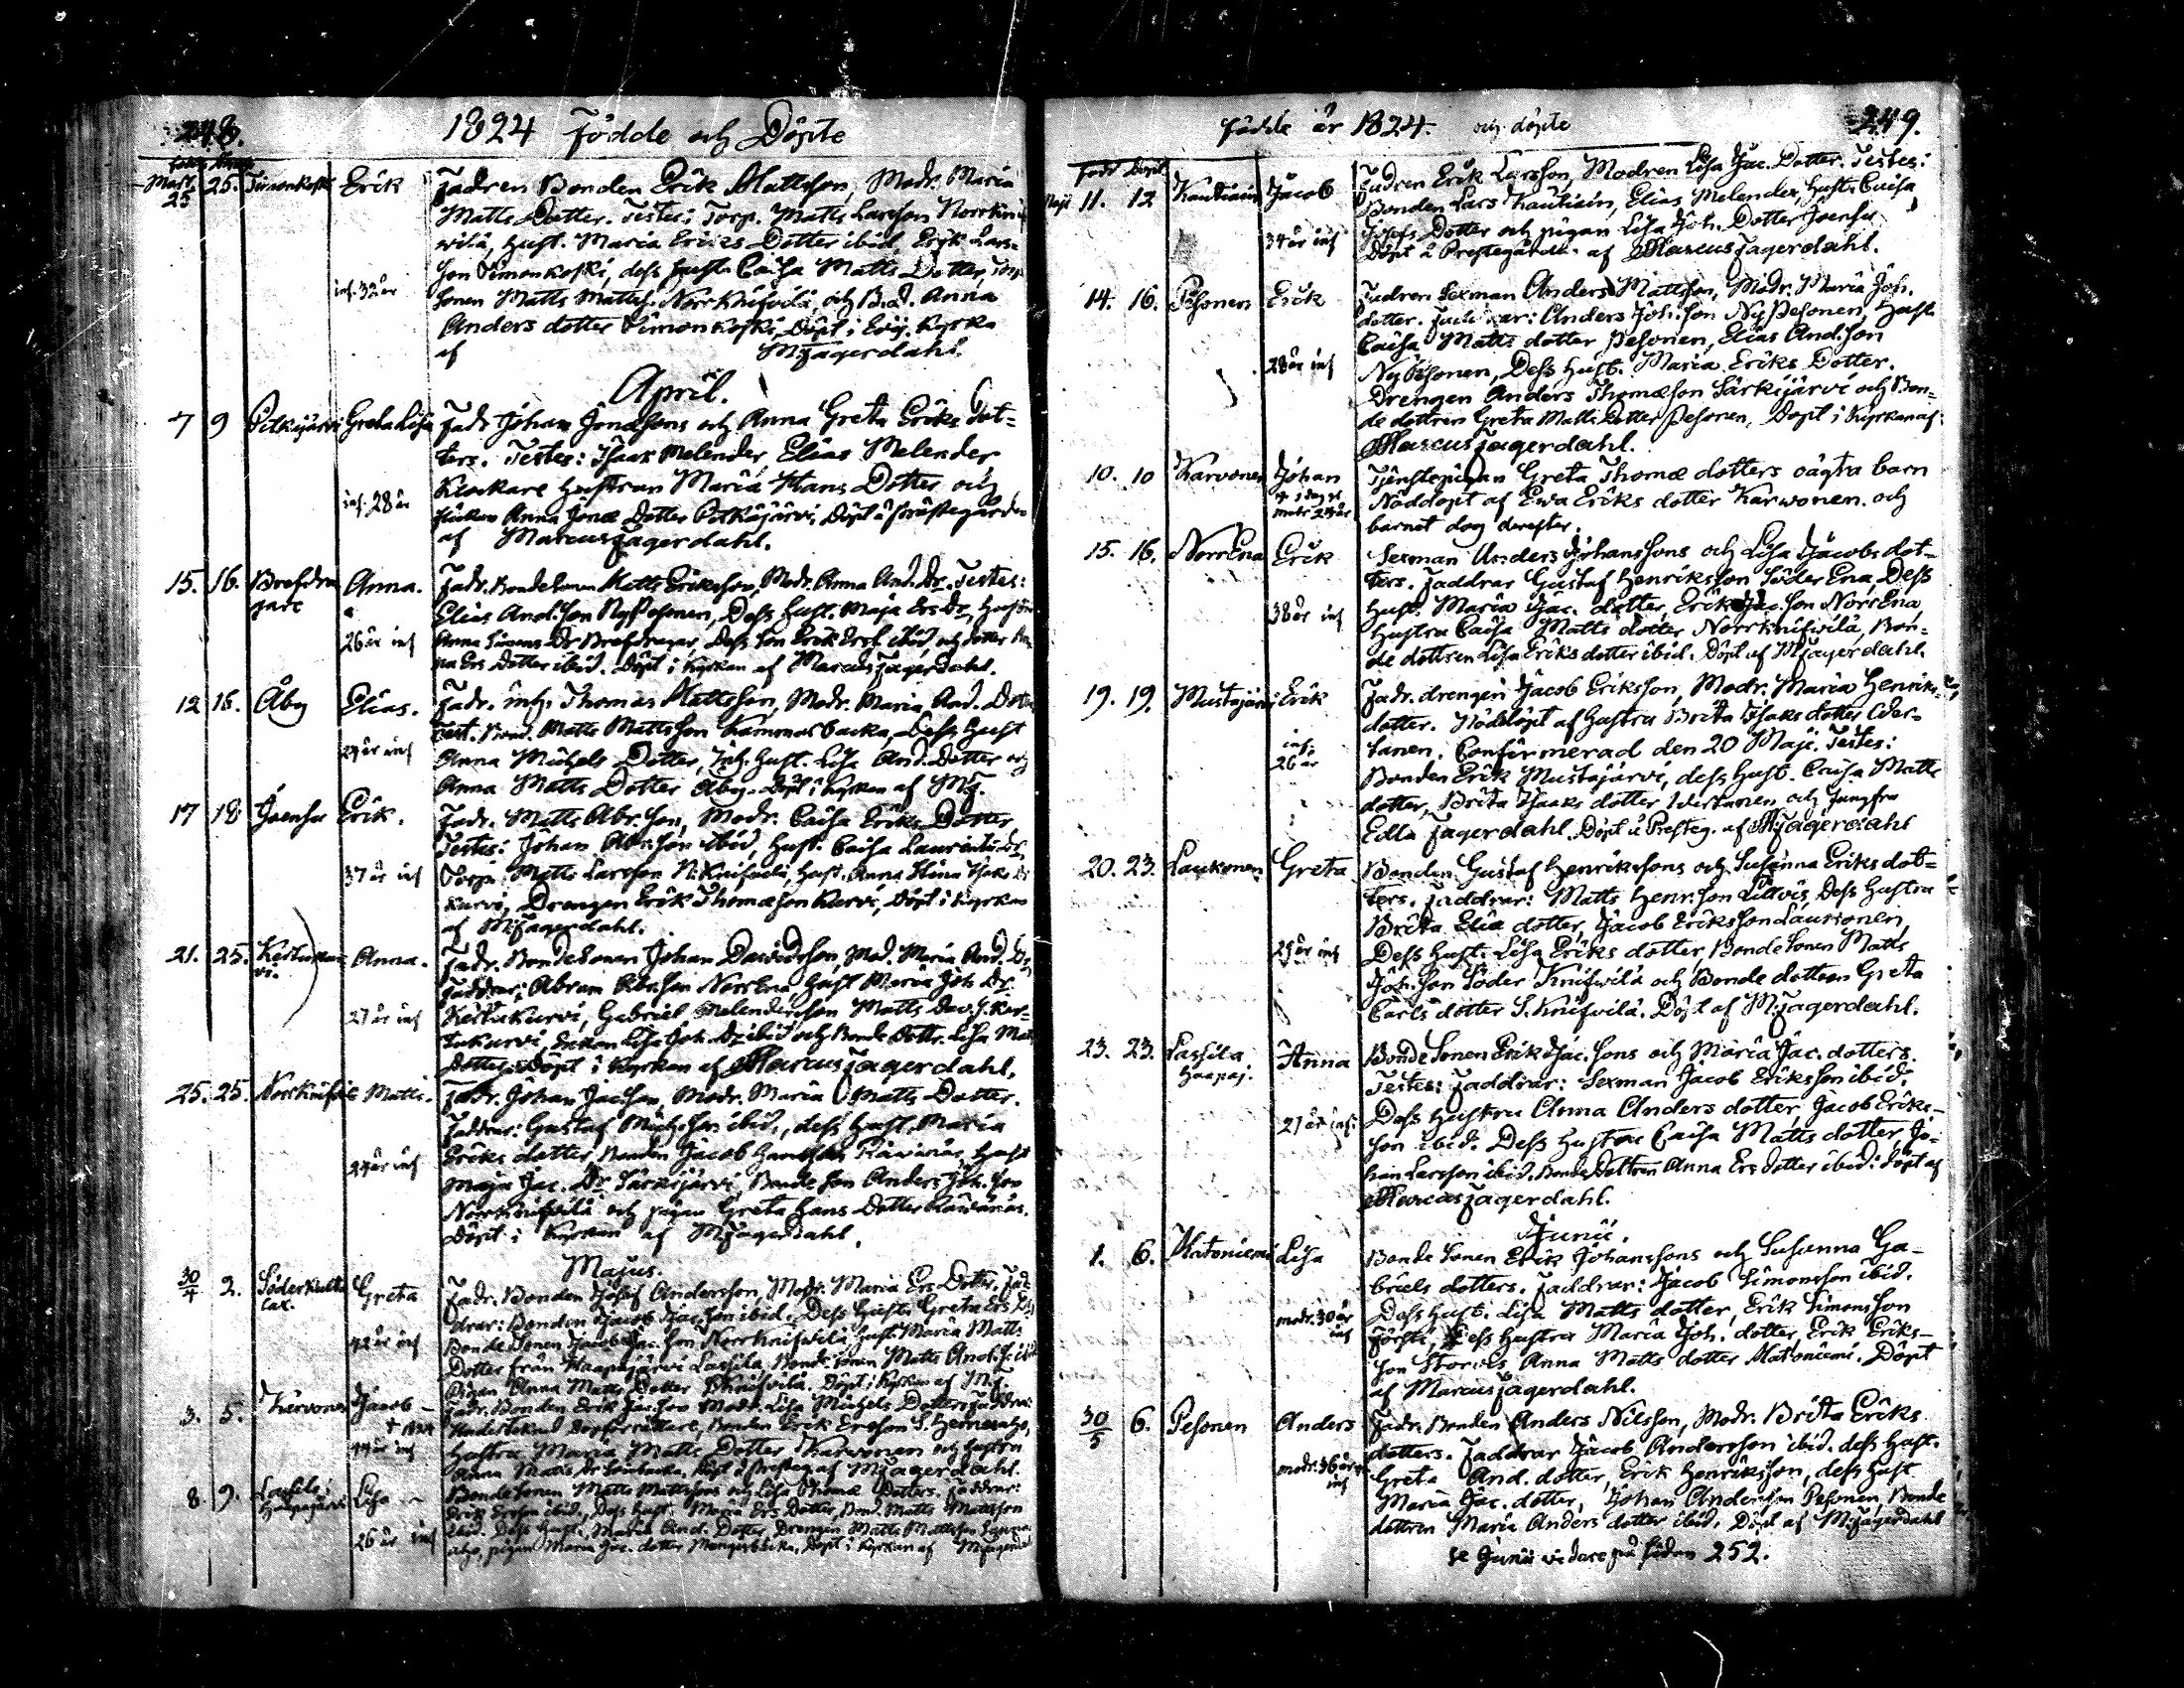 248.
1824 Födde och Döpte
Mart. 23 25. Timonkoski Erik Fadren Bonden Erik Mattsson, Modr. Maria
Matts Dotter. Testes: Torp. Matts Larsson Norrknif
wilä, Hust. Maria Erics Dotter ibid, Erik Lars-
son Timonkoski, dess hustr. Caisa Matts Dotter, Torp
inf. 32 år sonen Matts Mattss. Norrknifvilä och Bnd. Anna
Anders dotter Timonkoski, Döpt i Evij. Kyrka
af MJagerdahl.
April.
7 9 Pitkäjärvi Greta Lisa Fadr Johan Jonæsons och Anna Greta Eriks dot-
ters. Testes: Isaak Melender Elias Melender
inf. 28 år Klockare hustrun Maria Hans Dotter och
Anna Jonæ Dotter Pitkäjärvi, Döpt å prästegården
af Marcus Jagerdahl.
15. 16. Brefdra Anna. Fadr. Bondesonen Matts Eriksson, Modr. Anna And. Dr. Testes:
gare Elias And.son NyPesonen, Dess hust. Maja Ers Dr, Hustru
26 år inf Anna Simons Dr Brefdragar, dess son Erik Erss. ibid, och dotter An
na Ers dotter ibid. Döpt i kyrkan af Marcus Jagerdahl.
12 18. Åby Elias. Fadr. inh. Thomas Mattsson, Modr. Maria And. Dotter
Test. Bond. Matts Mattsson Kammarbacka, Dess Hust
29 år inf Anna Michels Dotter, Inh. Hust. Lisa And. Dotter och
Anna Matts Dotter Åby. Döpt i kyrkan af MJ.
17 18 Joensu Erik. Fadr. Matts Abr.son, Modr. Caisa Eriks Dotter
Testes: Johan Abr.son ibid, hust. Caisa Laurentii Dr,
37 år inf Torp. Matts Larsson N. Knifwilä, Hust. Anna Stina Isaks Dr
Kurvi, Drengen Erik Thomæson Kurvi, Döpt i kyrkan
af MJagerdahl.
21. 25. Anna. Fadr. Bondesonen Johan Davidsson, Mod. Maria And. Dr,
Faddrar: Abram Abr.son NorrEna Hust Maria Joh Dr
27 år inf Keltukurvi, Gabriel Melendersson Matts Dav.s. Kel-
tukurvi, Lisa Joh. Dr ibid och Bonde Dottr. Lisa Mat
Dotter. Döpt i Kyrkan af Marcus Jagerdahl.
25. 25. Norrknifvilä Matts. Fadr. Johan Jacsson, Modr. Maria Matts Dotter.
Faddrar: Gustaf Mich.son ibid., dess hust. Maria
24 år inf Eriks dotter, Bonden Jacob Hansson Räwänäs, Hust
Maja Jac. Dr Särkijärvi, Bonde son Anders Joh.son
Norrknifwilä och pigan Greta Hans Dotter Räwänäs.
Döpt i Kyrkan af MJagerdahl.
Majus.
30/4 2. Greta Fadr. Bonden Josef Andersson, Modr. Maria Ers Dotter. Fad-
drar: Bonden Jacob Jac.son ibid. Dess hustr. Greta Ers Dr
42 år inf Bonde Sonen Jacob Jac.son Norrknifwilä hust. Maria Matts
Dotter från Haapajärvi Lassila Bonde sonen Matts And.s. ibid
Pigan Anna Matts Dotter Döpt i kyrkan af MJ.
3. 5. Karvonen Jacob Fadr. Bonden Erik Jac.son Modr. Lisa Michels Dotters, Faddrar
† 1824 Undertecknad Dopförrättare, Bonden Erik Ersson
44 år inf Hustru Maria Matts Dotter Karwonen och Hustru
Anna Matts Dr Döpt å presteg af MJagerdahl.
8. 9. Lassila Haapajärvi Lisa Bondesonen Matts Mattsons och Lisa Thomæ Dotters. Faddrar:
Erik Ersson ibid., Dess hust. Maria Ers Dotter, Bond. Matts Mattsson
26 år inf ibid. Dess hust. Maria And. Dotter, Drengen Matts Mattsson
pigan Maria Jac. dotter Döpt i kyrkan af MJagerdahl
Födde år 1824. och döpte 249.
född Döpt
Maji 11. 12 Kautiain Jacob Fadren Erik Larsson, Modren Lisa Jac. Dotter. Testes:
Bonden Lars Kautiain, Elias Melender, hust. Caisa
34 år inf Josefs Dotter och pigan Lisa Joh. Dotter Joensu
Döpt å Prestegården af Marcus Jagerdahl.
14. 16. Pesonen Erik Fadren Sexman Anders Mattsson, Modr. Maria Joh.
dotter. Faddrar: Anders Joh.son NyPesonen, Hust.
Caisa Matts dotter Pesonen, Elias And.son
28 år inf NyPesonen, Dess hust. Maria Eriks Dotter.
Drengen Anders Thomæson Särkijärvi och Bon-
de dottren Greta Matts Dotter Pesonen, Döpt i Kyrkan af:
Marcus Jagerdahl.
10. 10 Karvonen Johan Tjenstepigan Greta Thomæ dotters oägta barn
Nöddöpt af Ewa Eriks dotter Karwonen. och
modr 24 år barnet dog derefter.
15. 16. NorrEna Erik Sexman Anders Johanssons och Lisa Jacobs dot-
ters. Faddrar Gustaf Henriksson Söder Ena, Dess
38 år inf Hust. Maria Jac. dotter, Erik Jac.son NorrEna
Hustru Caisa Matts dotter Norrknifwilä, Bon-
de dottren Lisa Eriks dotter ibid. Döpt af MJagerdahl.
19. 19. Mustajärvi Erik Fadr. drengen Jacob Eriksson, Modr. Maria Henriks
dotter. Nöddöpt af Hustru Brita Isaks dotter Wer-
inf. 26 år tanen. Confirmerad den 20 Maji. Testes:
Bonden Erik Mustajärvi, dess hust. Caisa Matts
dotter, Brita Isaaks dotter Wertanen och Jungfru
Edla Jagerdahl. Döpt å Presteg. af MJagerdahl
20. 23. Laukonen Greta Bonden Gustaf Henrikssons och Susanna Eriks dot-
ters. Faddrar: Matts Henr.son Littvis, Dess Hustru
Brita Eliæ dotter, Jacob Eriksson Laukonen,
25 år inf Dess hust. Lisa Eriks dotter, Bonde Sonen Matts
Joh.son Söder Knifwilä och Bonde dottren Greta
Carls dotter S. Knifwilä. Döpt af MJagerdahl.
23. 23. Lassila Haapaj. Anna Bonde Sonen Erik Jac.sons och Maria Jac. dotters.
Testes: Faddrar: Sexman Jacob Eriksson ibid.
27 år inf. Dess hustru Anna Anders dotter, Jacob Eriks-
son ibid. Dess hustru Caisa Matts dotter, Jo-
han Larsson ibid. Bonde Dottren Anna Ers dotter ibid: döpt af
Marcus Jagerdahl.
Junii.
1. 6. Matoniemi Lisa Bonde Sonen Erik Johanssons och Susanna Ga-
briels dotters. Faddrar: Jacob Simonsson ibid.
modr. 30 år inf Dess hust. Lisa Matts dotter, Erik Simonsson
Försti, Dess hustru Maria Joh. dotter, Erik Eriks-
son Storvis, Anna Matts dotter Matoniemi. Döpt
af Marcus Jagerdahl.
30/5 6. Pesonen Anders Fadr. Bonden Anders Nilsson, Modr. Brita Eriks
dotters. Faddrar Jacob Andersson ibid. dess hust.
modr. 36 år inf Greta And. dotter, Erik Henriksson, dess hust
Maria Jac. dotter, Johan Andersson Pesonen, Bonde
dottren Maria Anders dotter ibid. Döpt af MJagerdahl
se Junii vidare på sidan 252.